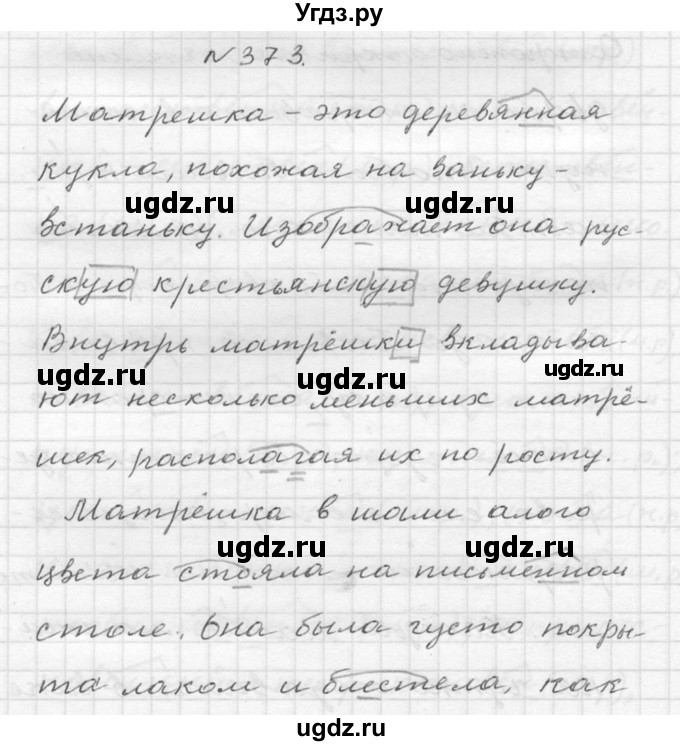 Угдз.ру
N 373.
Матрешка – это деревянная
кукла, похожая на ваньку-
ugdz.ru ugdz.ru
встаньку. Изображает она рус-
скую крестьянскую девушку.
Внутрь матрёшки вкладыва-
ugdz.ru ugdz.ru
ют несколько меньших матрё-
шек, располагая их по росту.
Матрёшка в шали алого
ugdz.ru ugdz.ru
цвета стояла на письменном
столе. Она была густо покры-
та лаком и блестела, как
ugdz.ru